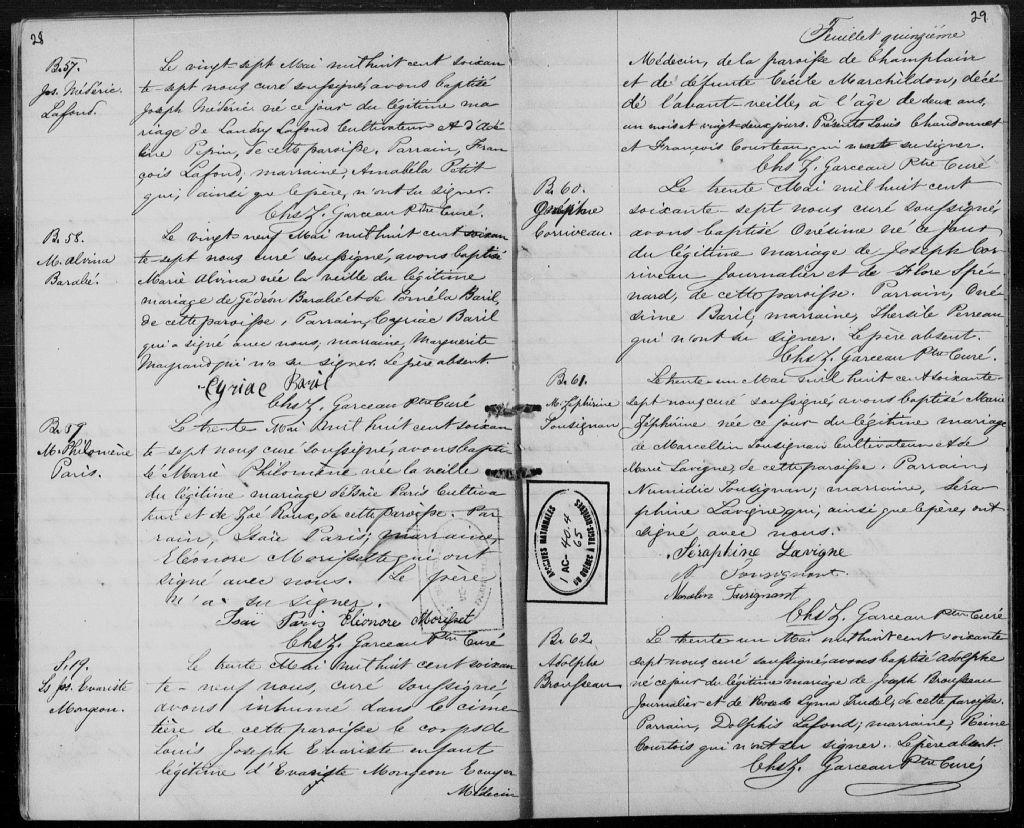 28
B. 57.
Jos. Médéric
Lafond.
Le vingt-sept Mai mil huit cent soixan
te-sept nous curé soussigné, avons baptisé
Joseph Médéric né ce jour du légitime ma
riage de Landry Lafond Cultivateur et d'Adé
line Pepin, de cette paroisse. Parrain, Fran
çois Lafond, marraine, Annabéla Petit
qui, ainsi que le père, n'ont su signer.
Chs Z. Garceau Ptre Curé.
B. 58.
M. Alvina
Barabé.
Le vingt-neuf Mai mil huit cent soixan
te-sept nous curé soussigné, avons baptisé
Marie Alvina née la veille du légitime
mariage de Gédéon Barabé et de Poméla Baril,
de cette paroisse, Parrain, Cyriac Baril
qui a signé avec nous, marraine, Marguerite
Mayrand qui n'a su signer. Le père absent.
Cyriac Baril
Chs Z. Garceau Ptre Curé
B. 59.
M. Philomène
Paris.
Le trente Mai mil huit cent soixan
te-sept nous curé soussigné, avons bapti
sé Marie Philomène née la veille
du légitime mariage d'Isaïe Paris Cultiva
teur et de Zoé Roux, de cette paroisse. Par
rain, Isaïe Paris; marraine,
Eléonore Morissette qui ont
signé avec nous. Le père
n'a su signer.
Isaï Paris Eléonore Morisset
Chs Z. Garceau Ptre Curé
S. 19.
Ls Jos. Evariste
Mongeon.
Le trente Mai mil huit cent soixan
te-neuf nous, curé soussigné,
avons inhumé dans le cime
tière de cette paroisse le corps de
Louis Joseph Evariste enfant
légitime d'Evariste Mongeon Ecuyer
Médecin
29
Feuillet quinzième
Médecin, de la paroisse de Champlain
et de défunte Cécile Marchildon, décé
dé l'avant-veille, à l'âge de deux ans,
un mois et vingt-deux jours. Présents Louis Chandonnet
et François Courteau, qui n'ont su signer.
Chs Z. Garceau Ptre Curé
B. 60.
Corriveau.
Le trente Mai mil huit cent
soixante-sept nous curé soussigné,
avons baptisé Onésime né ce jour
du légitime mariage de Joseph Cor
riveau Journalier et de Flore Spé
nard, de cette paroisse. Parrain, Oné
sime Baril; marraine, Thersile Perreau
qui n'ont su signer. Le père absent.
Chs Z. Garceau Ptre Curé.
B. 61.
M. Zéphirine
Tousignan
Le trente-un Mai mil huit cent soixante-
sept nous curé soussigné, avons baptisé Marie
Zéphirine née ce jour du légitime mariage
de Marcellin Tousignan Cultivateur et de
Marie Lavigne, de cette paroisse. Parrain,
Numidic Tousignan; marraine, Séra
phine Lavigne, qui, ainsi que le père, ont
signé avec nous.
Séraphine Lavigne
N Tousignant.
Marselin Tousignant
Chs Z. Garceau Ptre Curé
ARCHIVES NATIONALES
DU QUÉBEC À TROIS-RIVIÈRES
1 AC- 40.4
65
B. 62.
Adolphe
Brousseau
Le trente un Mai mil huit cent soixante
sept nous curé soussigné, avons baptisé Adolphe
né ce jour du légitime mariage de Joseph Brousseau
Journalier et de Rose de Lyma Trudel, de cette paroisse.
Parrain, Dolphis Lafond; marraine, Reine
Courtois qui n'ont su signer. Le père absent.
Chs Z. Garceau Ptre Curé